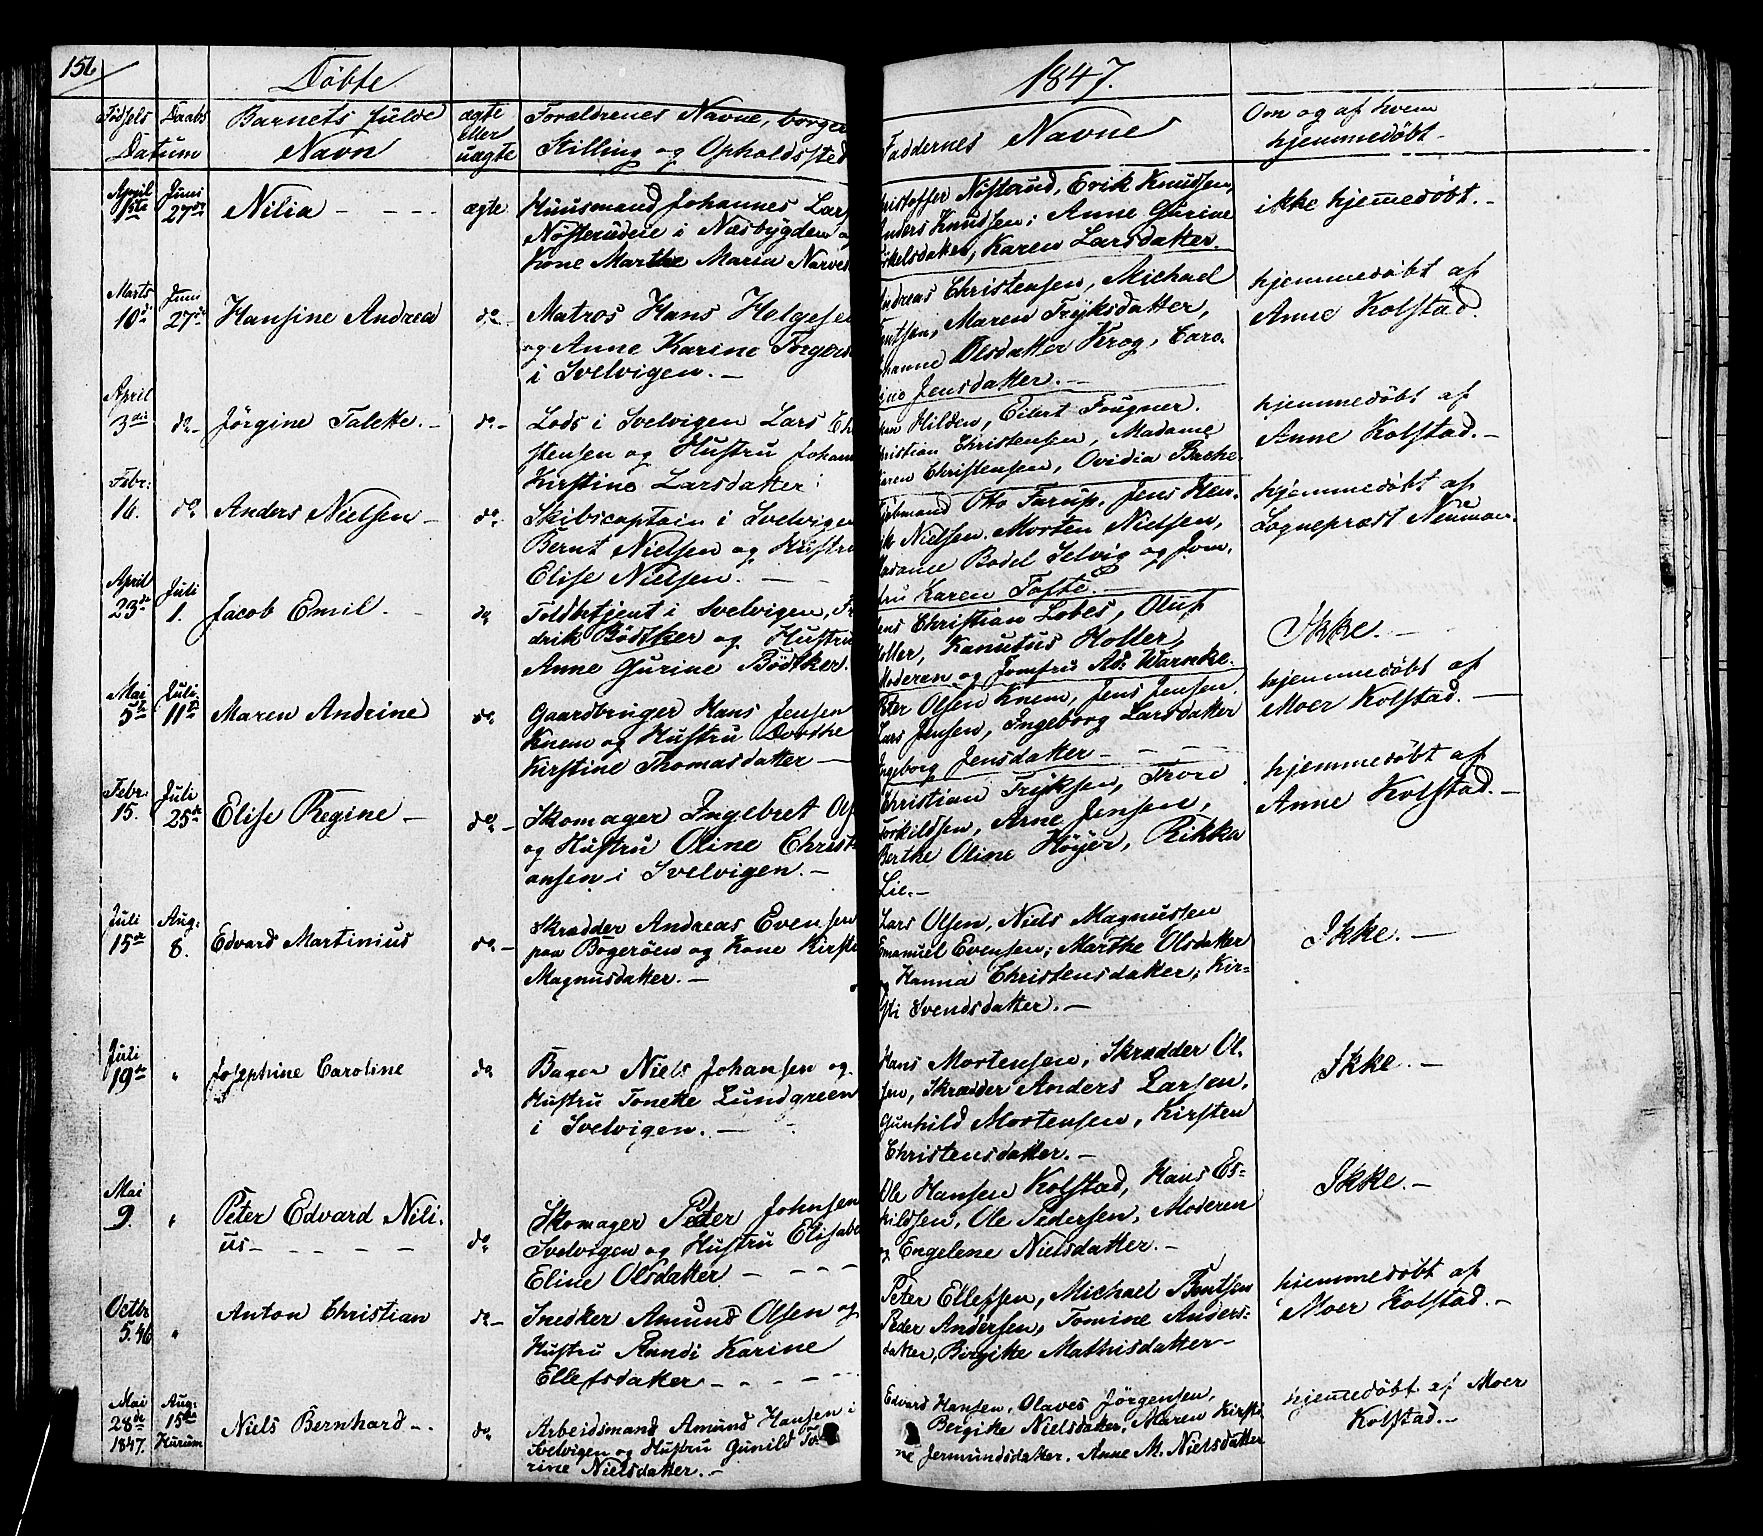 156
Döbte
1847.
Födsels Daabs Datum
Barnets fulde Navn
ægte eller uægte
Forældrenes Navne, borger
Stilling og Opholdssted
Faddernes Navne
Om og af hvem
hjemmedöbt.
April 1ste Juni 27de Nilia - - - - ægte
Huusmand Johannes Lars
Nösterudeie i Næsbygden og
Kone Marthe Maria Narves
ristoffer Nösterud, Erik Knudsen,
nders Knudsen; Anne Gurine
kelsdatter, Karen Larsdatter.
ikke hjemmedöbt. -
Marts 10de Juni 27de Hansine Andrea do -
Matros Hans Helgesen
og Anne Karine Torgers
i Svelvigen. -
ndreas Christensen, Michael
entsen, Maren Tryksdatter,
hanne Olsdatter Krog, Caro-
line Jensdatter. -
hjemmedöbt af
Anne Kolstad.
April 3die do - Jörgine Talette. - do -
Lods i Svelvigen Lars Chr
stensen og Hustru Johan
Kirstine Larsdatter.
Hilden, Eilert Fougner.
ristian Christensen, Madame
aren Christensen, Ovidia Bache.
hjemmedöbt af
Anne Kolstad. -
Febr: 16. do Anders Nielsen - do.
Skibscaptain i Svelvigen
Bernt Nielsen og Hustru
Elise Nielsen. - -
Kjöbmand Otto Farup, Jens Hen-
rik Nielsen. Morten Nielsen,
adame Bodel Selvig og Jom-
fru Karen Tofte. -
hjemmedöbt af
Sognepræst Neuman.
April 23de Juli 1. Jacob Emil. - do
Toldbetjent i Svelvigen, Fr
drik Bödtker og Hustru
Anne Gurine Bödtker.
ens Christian Lobes, Oluf
oller, Kanutus Holler,
Moderen og Jomfru Ad: Warnke.
Ikke. -
Mai 5te Juli 11te Maren Andrine do
Gaardbruger Hans Jensen
Knem og Hustru Dorthe
Kirstine Thomasdatter -
Peter Olsen Knem, Jens Jensen.
Lars Jensen, Ingeborg Larsdatter
Ingeborg Jensdatter - - - -
hjemmedöbt af
Moer Kolstad. -
Febr. 15. Juli 25de Elise Regine - do -
Skomager Ingebret Ols
og Hustru Oline Christi
ansen i Svelvigen. -
Christian Tryksen, Thore
Torkildsen, Arne Jensen,
Berthe Oline Höyer, Rikka
Lie. -
hjemmedöbt af
Anne Kolstad. -
Juli 15de Aug. 8. Edvard Martinius do -
Skrædder Andreas Evensen
paa Bogeröen og Kone Kirsti
Magnusdatter. -
Lars Olsen, Niels Magnussen
Emanuel Evensen; Marthe Olsdatter
og Hanna Christensdatter, Kir-
sti Svendsdatter. -
Ikke. -
Juli 19de " Josephine Caroline do
Bager Niels Johansen og
Hustru Tonette Lundgreen
i Svelvigen. -
Hans Mortensen, Skrædder Ol-
sen, Skrædder Anders Larsen.
Gunhild Mortensen, Kirsten
Christensdatter. -
Ikke. -
Mai 9. " Peter Edvard Nili-
us - - - - - do
Skomager Peter Johnsen
Svelvigen og Hustru Elisabe
Eline Olsdatter - - - -
Ole Hansen Kolstad, Hans Es-
kildsen, Ole Pedersen, Moderen
og Engelene Nielsdatter. -
Ikke. -
Octbr 5. 46 " Anton Christian do -
Snedker Amund Olsen og
Hustru Randi Karine
Ellefsdatter - - - - -
Peter Ellefsen, Michael Bentsen
Peder Andersen, Tomine Anders-
datter, Birgitte Mathisdatter -
hjemmedöbt af
Moer Kolstad. -
Mai 28de 1847. Aug. 15de Hurum Niels Bernhard -. do
Arbeidsmand Amund Hansen i
Svelvigen og Hustru Gunild To
rine Nielsdatter. -
Edvard Hansen, Olaves Jörgensen,
Birgitte Nielsdatter, Maren Kirsti
ne Jermundsdatter. Anne M. Nielsdatter
hjemmedöbt af Moer
Kolstad. -